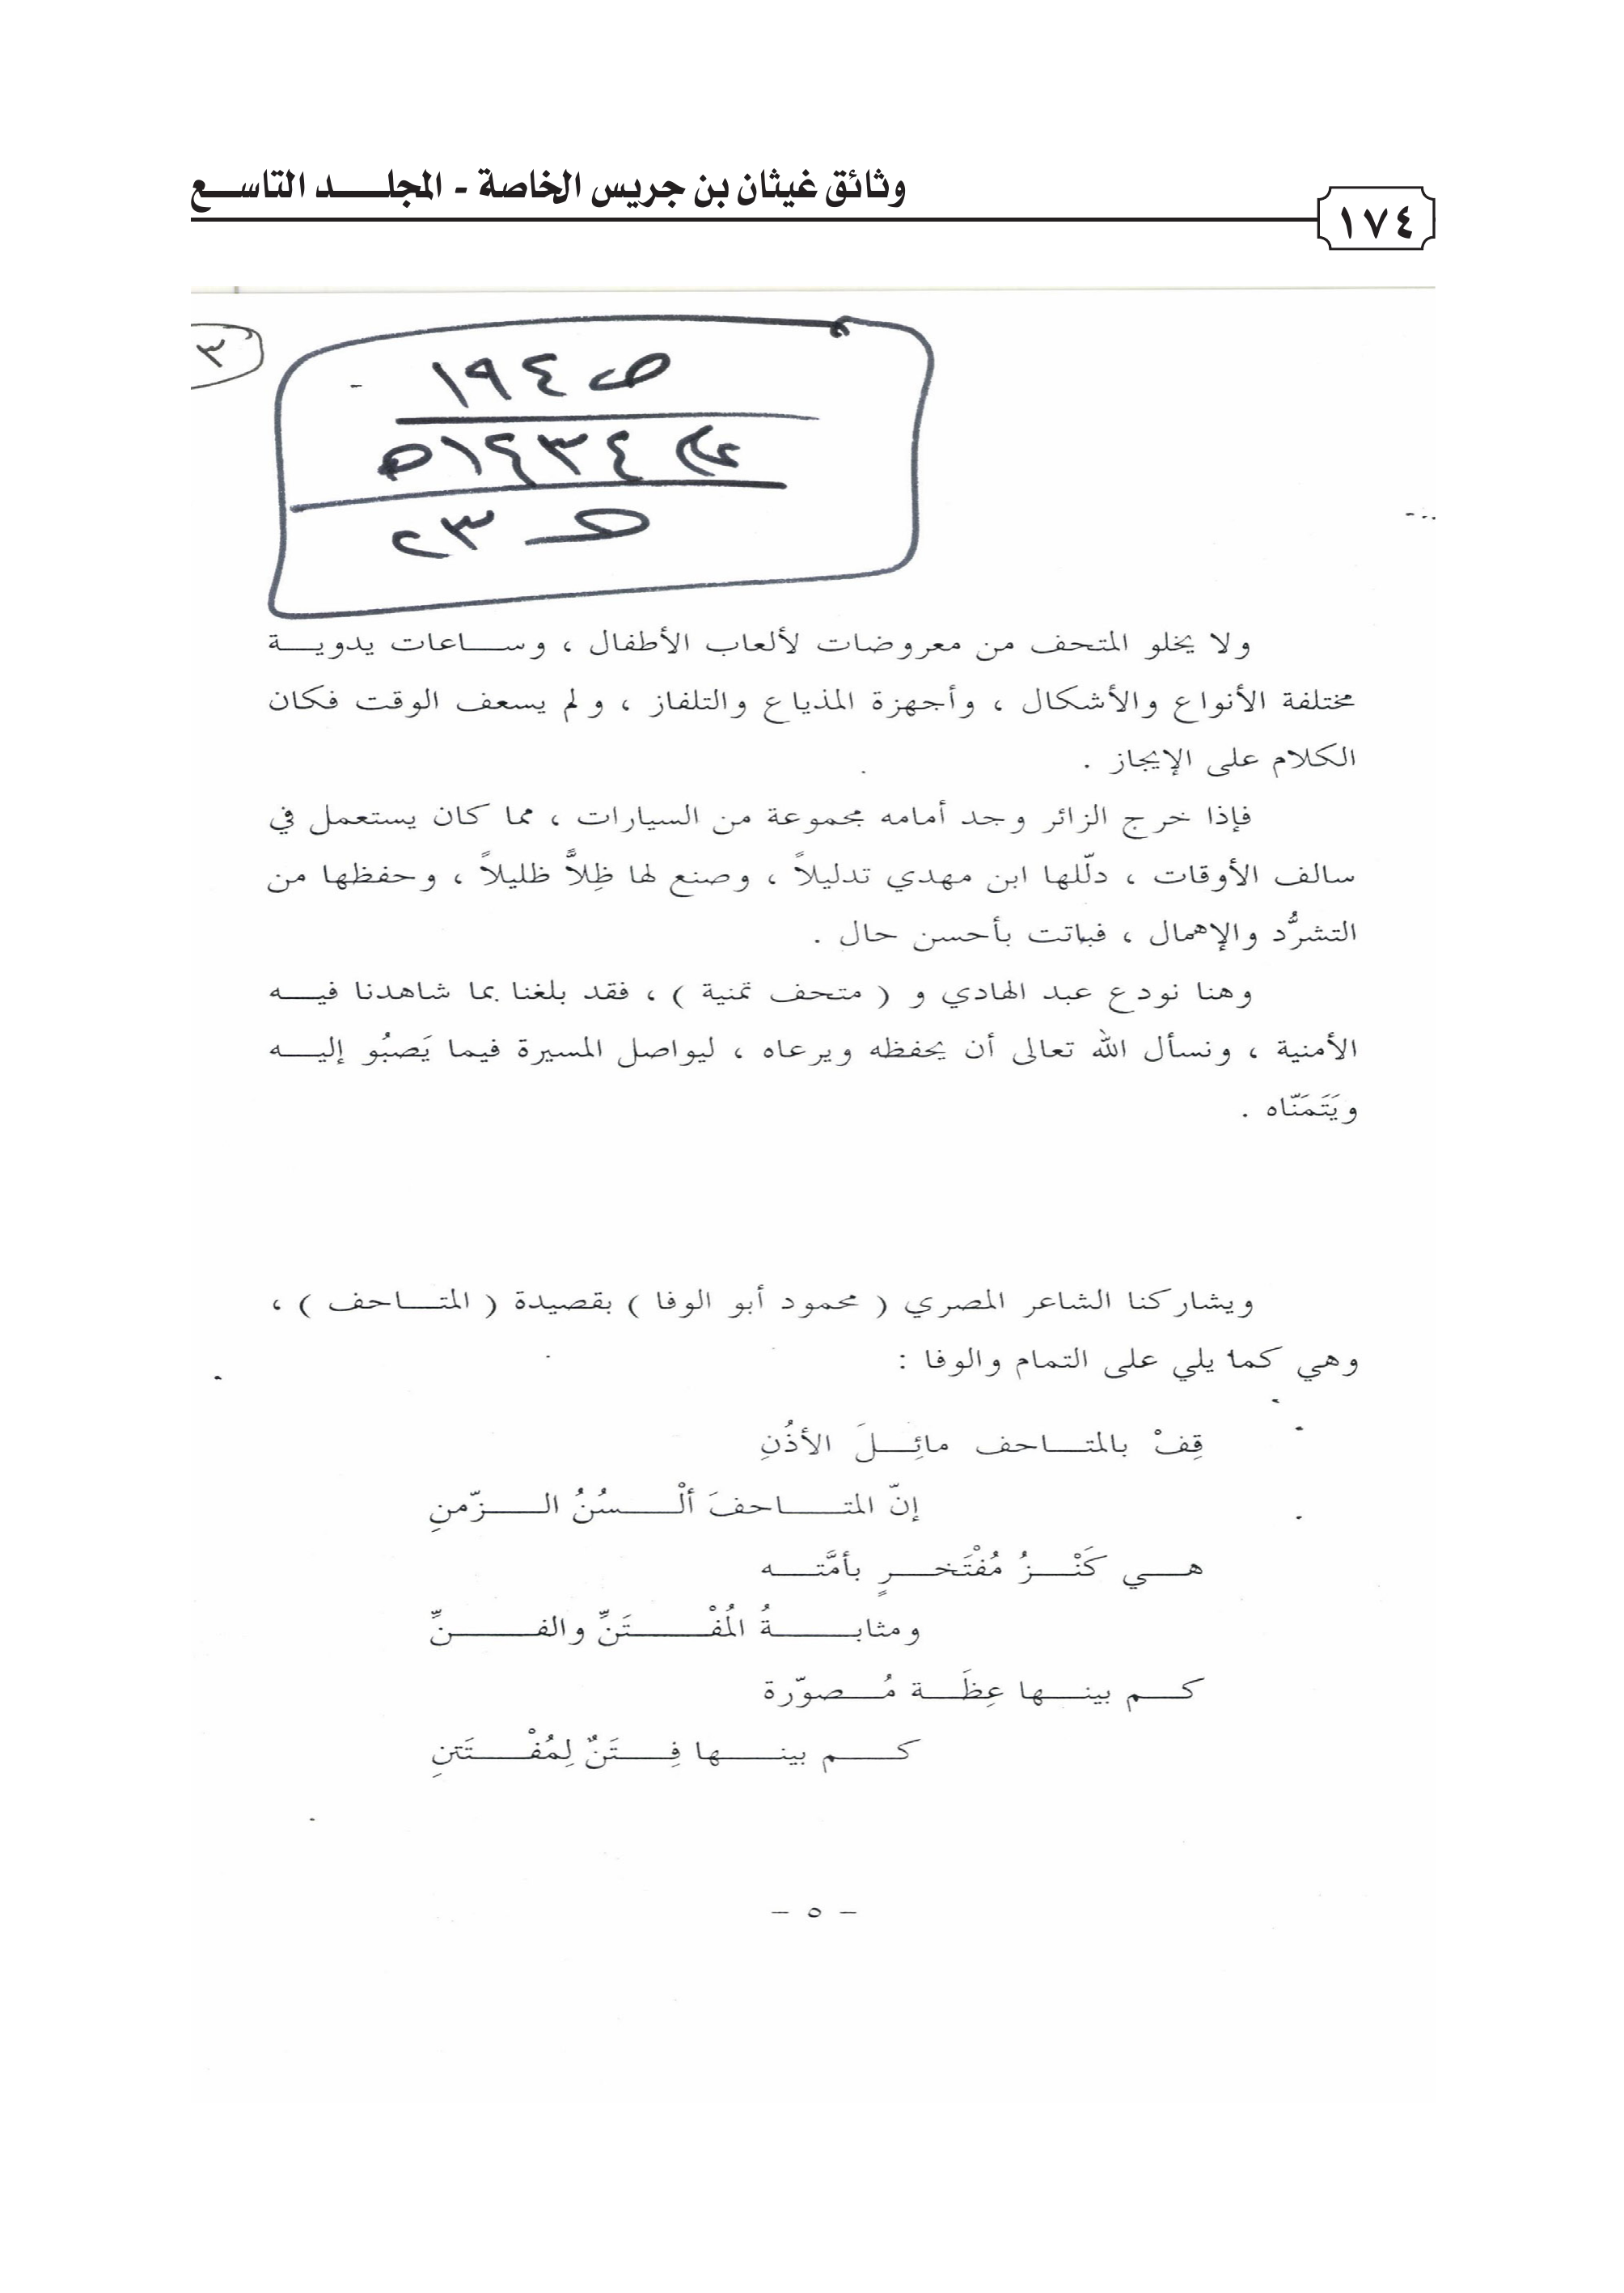 وثائق غيثان بن جريس الخاصة - المجلد التاسع
١٧٤
٣
ص ١٩٤
١٤٣٤ه
ص ٢٣
ولا يخلو المتحف من معروضات لألعاب الأطفال ، وساعات يدوية
مختلفة الأنواع والأشكال ، وأجهزة المذياع والتلفاز ، ولم يسعف الوقت فكان
الكلام على الإيجاز .
فإذا خرج الزائر وجد أمامه مجموعة من السيارات ، مما كان يستعمل في
سالف الأوقات ، دلّلها ابن مهدي تدليلاً ، وصنع لها ظِلاًّ ظليلاً ، وحفظها من
التشرُّد والإهمال ، فباتت بأحسن حال .
وهنا نودع عبد الهادي و ( متحف تمنية ) ، فقد بلغنا بما شاهدنا فيه
الأمنية ، ونسأل الله تعالى أن يحفظه ويرعاه ، ليواصل المسيرة فيما يَصبُو إليه
ويَتَمَنّاه .
ويشاركنا الشاعر المصري ( محمود أبو الوفا ) بقصيدة ( المتاحف ) ،
وهي كما يلي على التمام والوفا :
قِفْ بالمتاحف مائِلَ الأذُنِ
إنّ المتاحفَ ألْسُنُ الزّمنِ
هي كَنْزُ مُفْتَخرٍ بأمَّته
ومثابةُ المُفْتَنِّ والفنِّ
كم بينها عِظَة مُصوّرة
كم بينها فِتَنٌ لِمُفْتَتنِ
- ٥ -